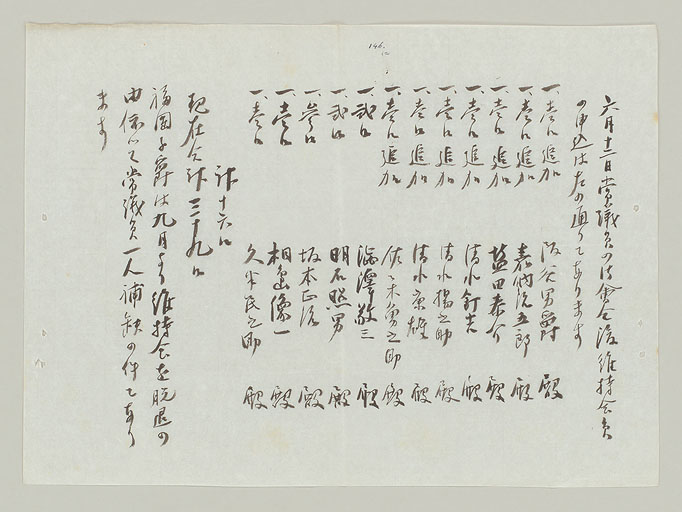 146
六月十三日常議員の御会合後維持会員
の申込は左の通りであります
一、壱口 追加 阪谷男爵 殿
一、壱口 追加 嘉納治五郎 殿
一、壱口 追加 益田孝介 殿
一、壱口 追加 清水釘吉 殿
一、壱口 追加 清水揚之助 殿
一、壱口 追加 清水康雄 殿
一、壱口 追加 佐々木勇之助 殿
一、弐口 渋澤敬三 殿
一、弐口 明石照男 殿
一、参口 坂本正治 殿
一、壱口 相島像一 殿
一、壱口 久米民之助 殿
計十六口
現在合計三十九口
福岡子爵は九月より維持会を脱退の
由依つて常議員一人補欠の件であり
ます